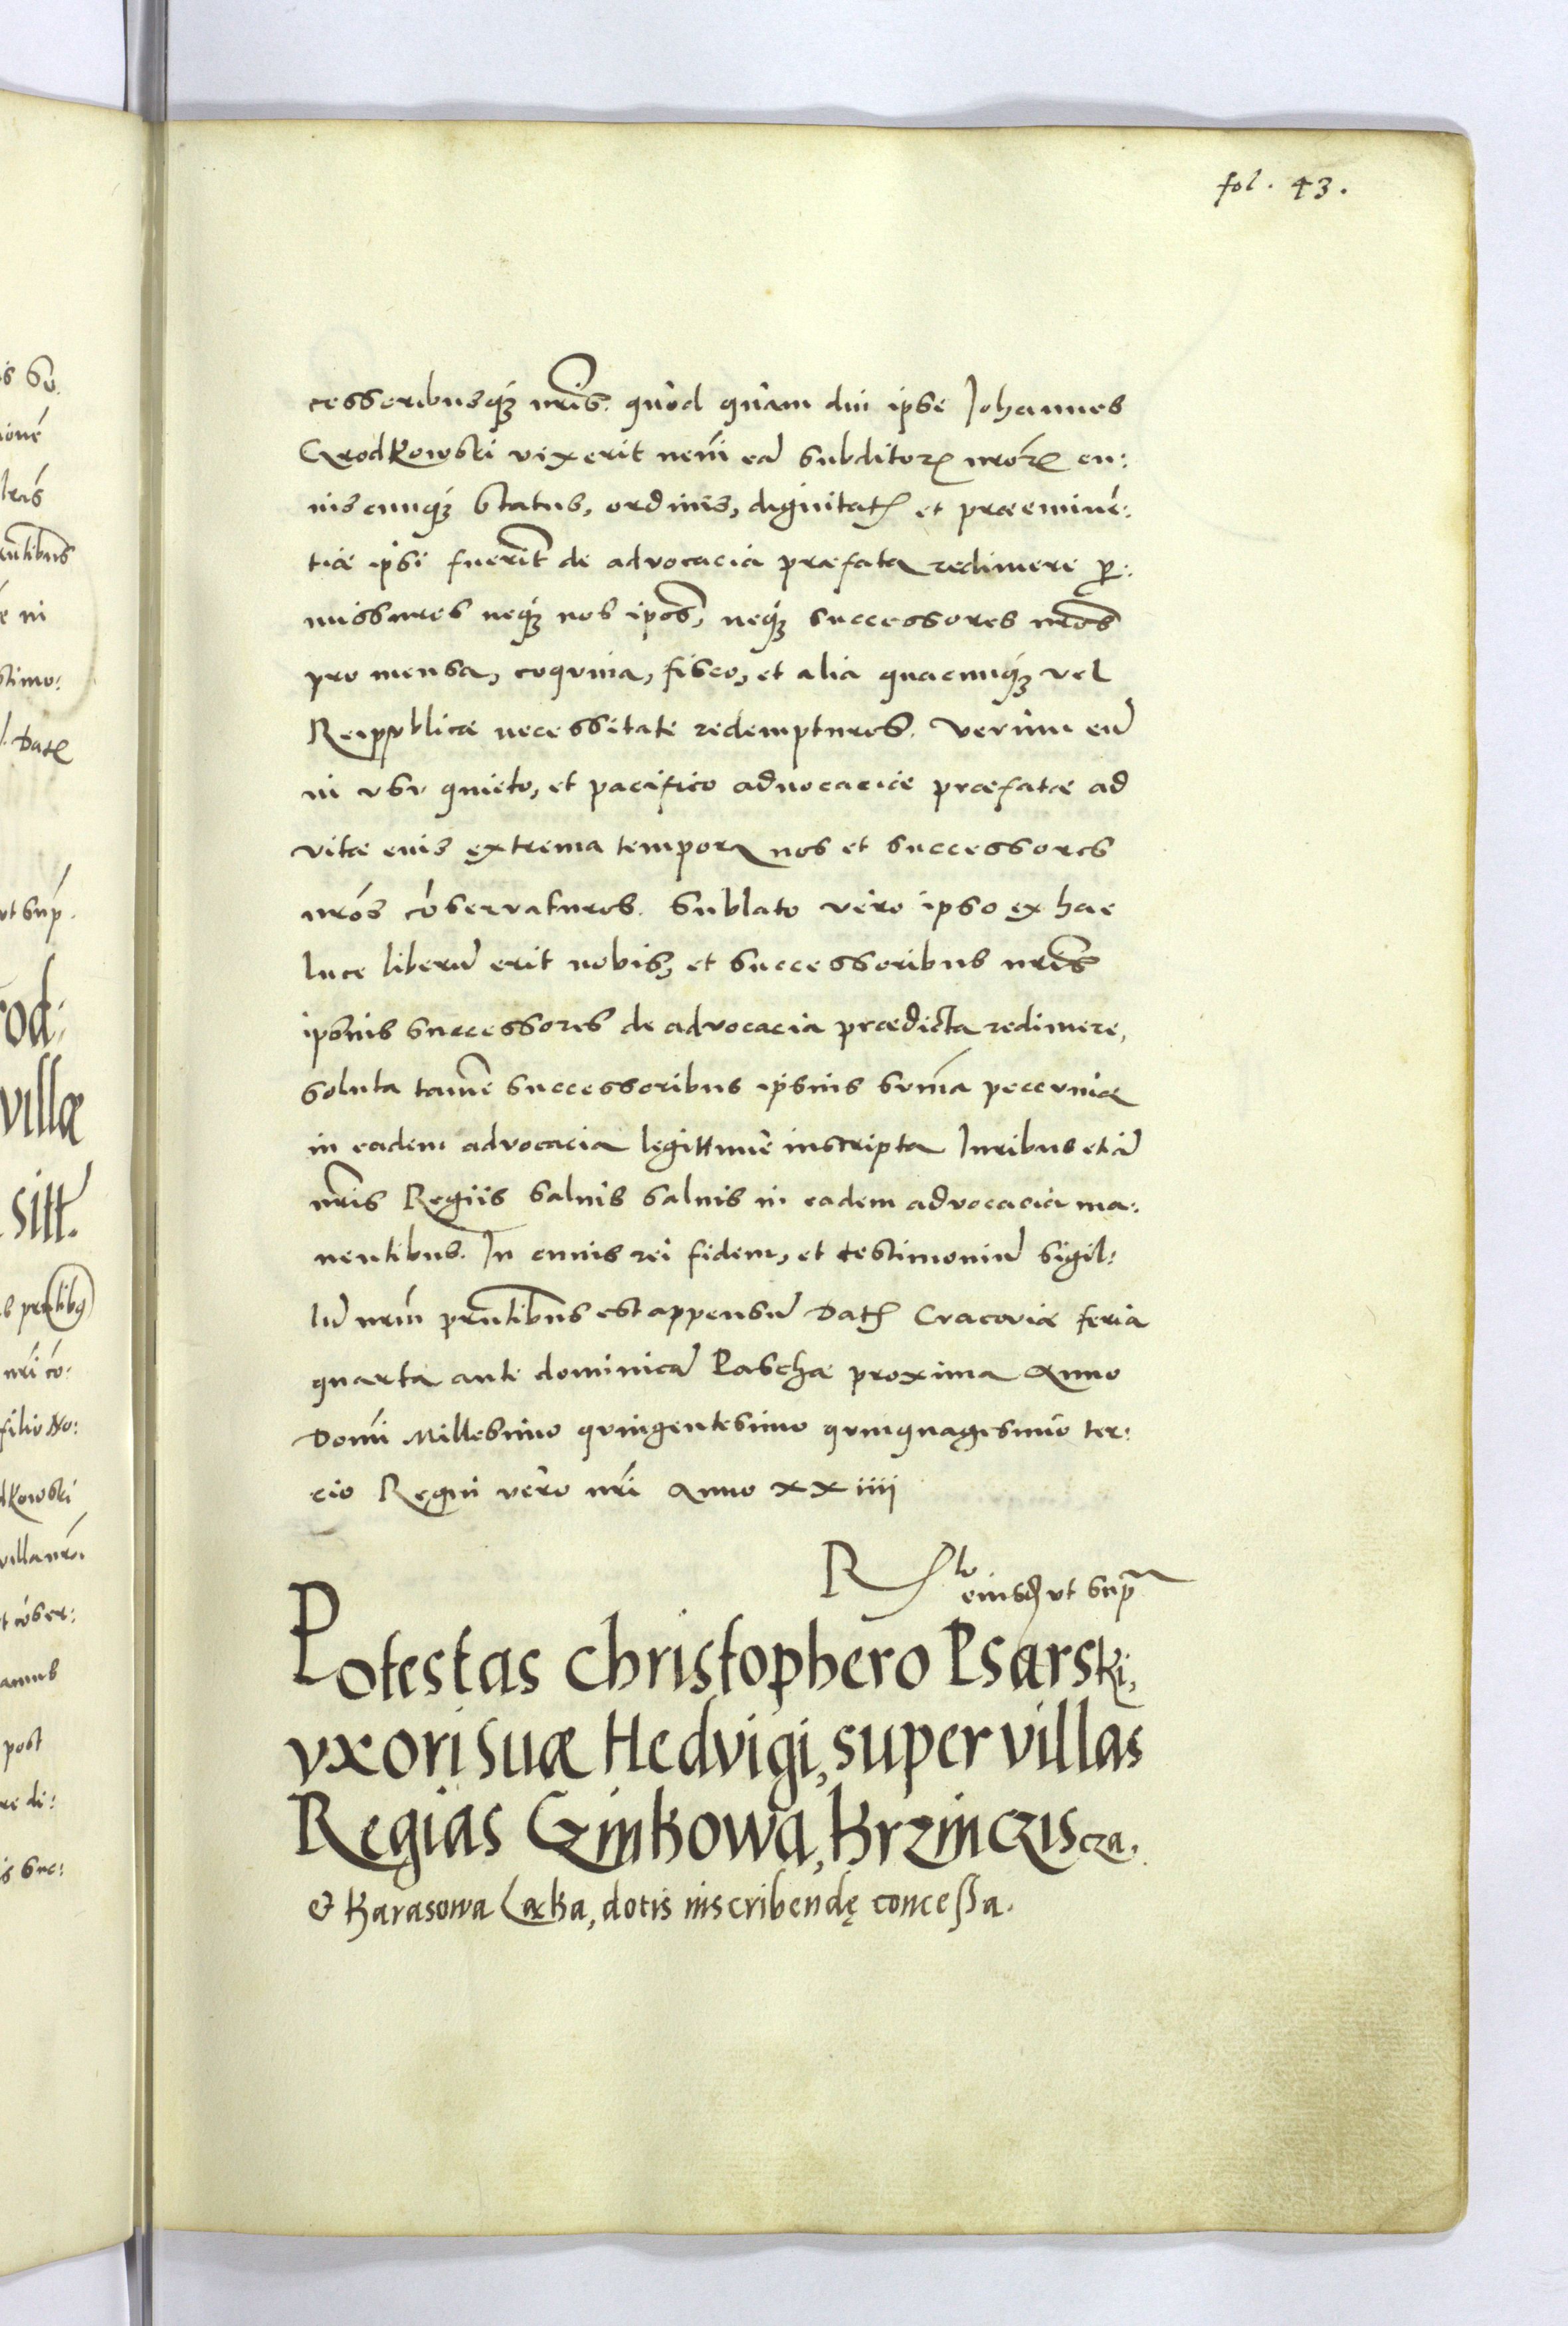 fol. 43.
cessoribusq́ꝫ nr̃is. quòd quàm diu ipse Johannes
Grodkowski vixerit nemi eã subditorꝝ nrõrꝝ cu:
iuscunq́ꝫ status, ordinis, dignitatꝭ et præeminẽ:
tiæ ipsi fuerĩt de advocacia præfata redimere ꝑ:
missuros neq́ꝫ nos ipõs, neq́ꝫ successores nrõs
pro mensa, coquina, fisco, et alia quacunq́ꝫ vel
Reipublicæ necessitate redempturos. Verùm eũ
in usu quieto, et pacifico advocaciæ præfatæ ad
vitæ euis extrema tempora nos et successores
nrõs cõservaturos. Sublato vero ipso ex hac
luce liberũ erit nobis, et successoribus nr̃is
ipsius successores de advocacia prædicta redimere,
soluta tamẽ successoribus ipsius sum̃a peccuniæ
in eadem advocacia legittimè inscripta Iuribus etiã
nr̃is Regiis salvis salvis in eadem advocacia ma:
nentibus. In cuius rei fidem, et testimoniũ sigil:
lũ nrm̃ prñtibus est appensũ Datꝭ Cracoviæ feria
quarta ante dominicã Paschæ proxima Anno
Domi Millesimo quingentesimo quinquagesimo ter:
cio Regni vero nr̃i Anno xxiiii
R
lo eiusdẽ ut supra
Potestas Christophero Psarski,
vxori suæ Hedvigi, super villas
Regias Ginkowa, Krzincziscza,
& Karasowa Laka, dotis inscribendę concessa.